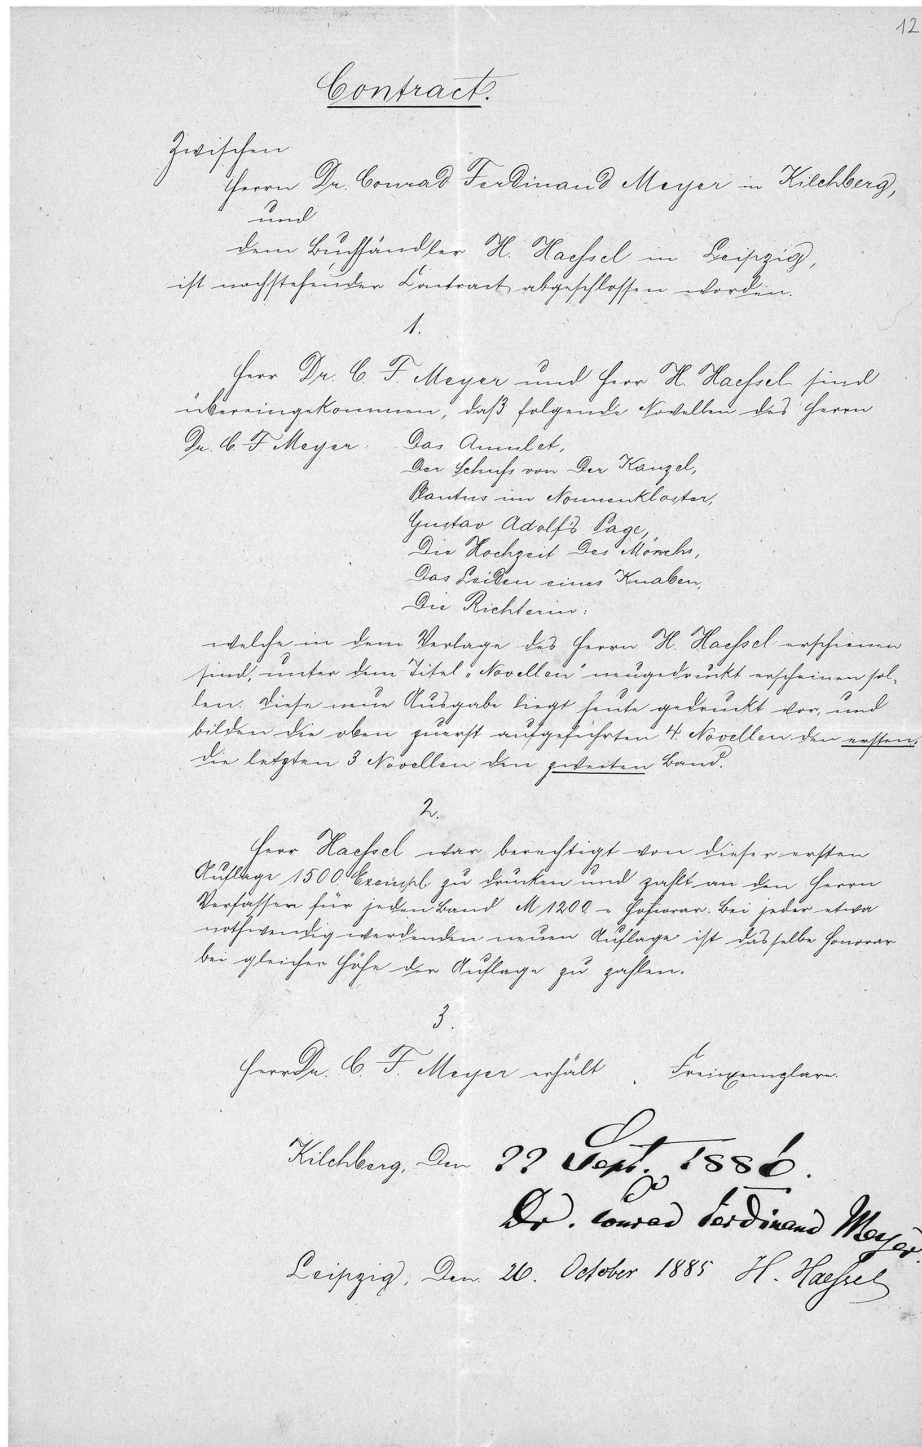 12
Contract.
Zwischen
Herrn Dr. Conrad Ferdinand Meyer in Kilchberg,
und
dem Buchhändler H. Haessel in Leipzig,
ist nachstehender Contract abgeschlossen worden.
1.
Herr Dr. C. F. Meyer und Herr H. Haessel sind
übereingekommen, daß folgende Novellen des Herrn
Dr. C. F Meyer: Das Amulet,
Der Schuss von der Kanzel,
Plautus im Nonnenkloster,
Gustav Adolf's Page,
Die Hochzeit des Mönchs,
Das Leiden eines Knaben,
Die Richterin:
welche in dem Verlage des Herrn H. Haessel erschienen
sind, unter dem Titel „Novellen" neugedruckt erscheinen sol-
len. Diese neue Ausgabe liegt heute gedruckt vor, und
bilden die oben zuerst aufgeführten 4 Novellen den ersten,
die letzten 3 Novellen den zweiten Band.
2.
Herr Haessel war berechtigt von dieser ersten
Auflage 1500 Exempl. zu drucken und zahlt an den Herrn
Verfasser für jeden Band M 1200 – Honorar. Bei jeder etwa
nothwendig werdenden neuen Auflage ist dasselbe Honorar
bei gleicher Höhe der Auflage zu zahlen.
3.
Herr Dr. C. F. Meyer erhält Freiexemplare.
Kilchberg, den 22 Sept. 1886.
Dr. Conrad Ferdinand Meyer.
Leipzig, den 26. October 1885 H. Haessel